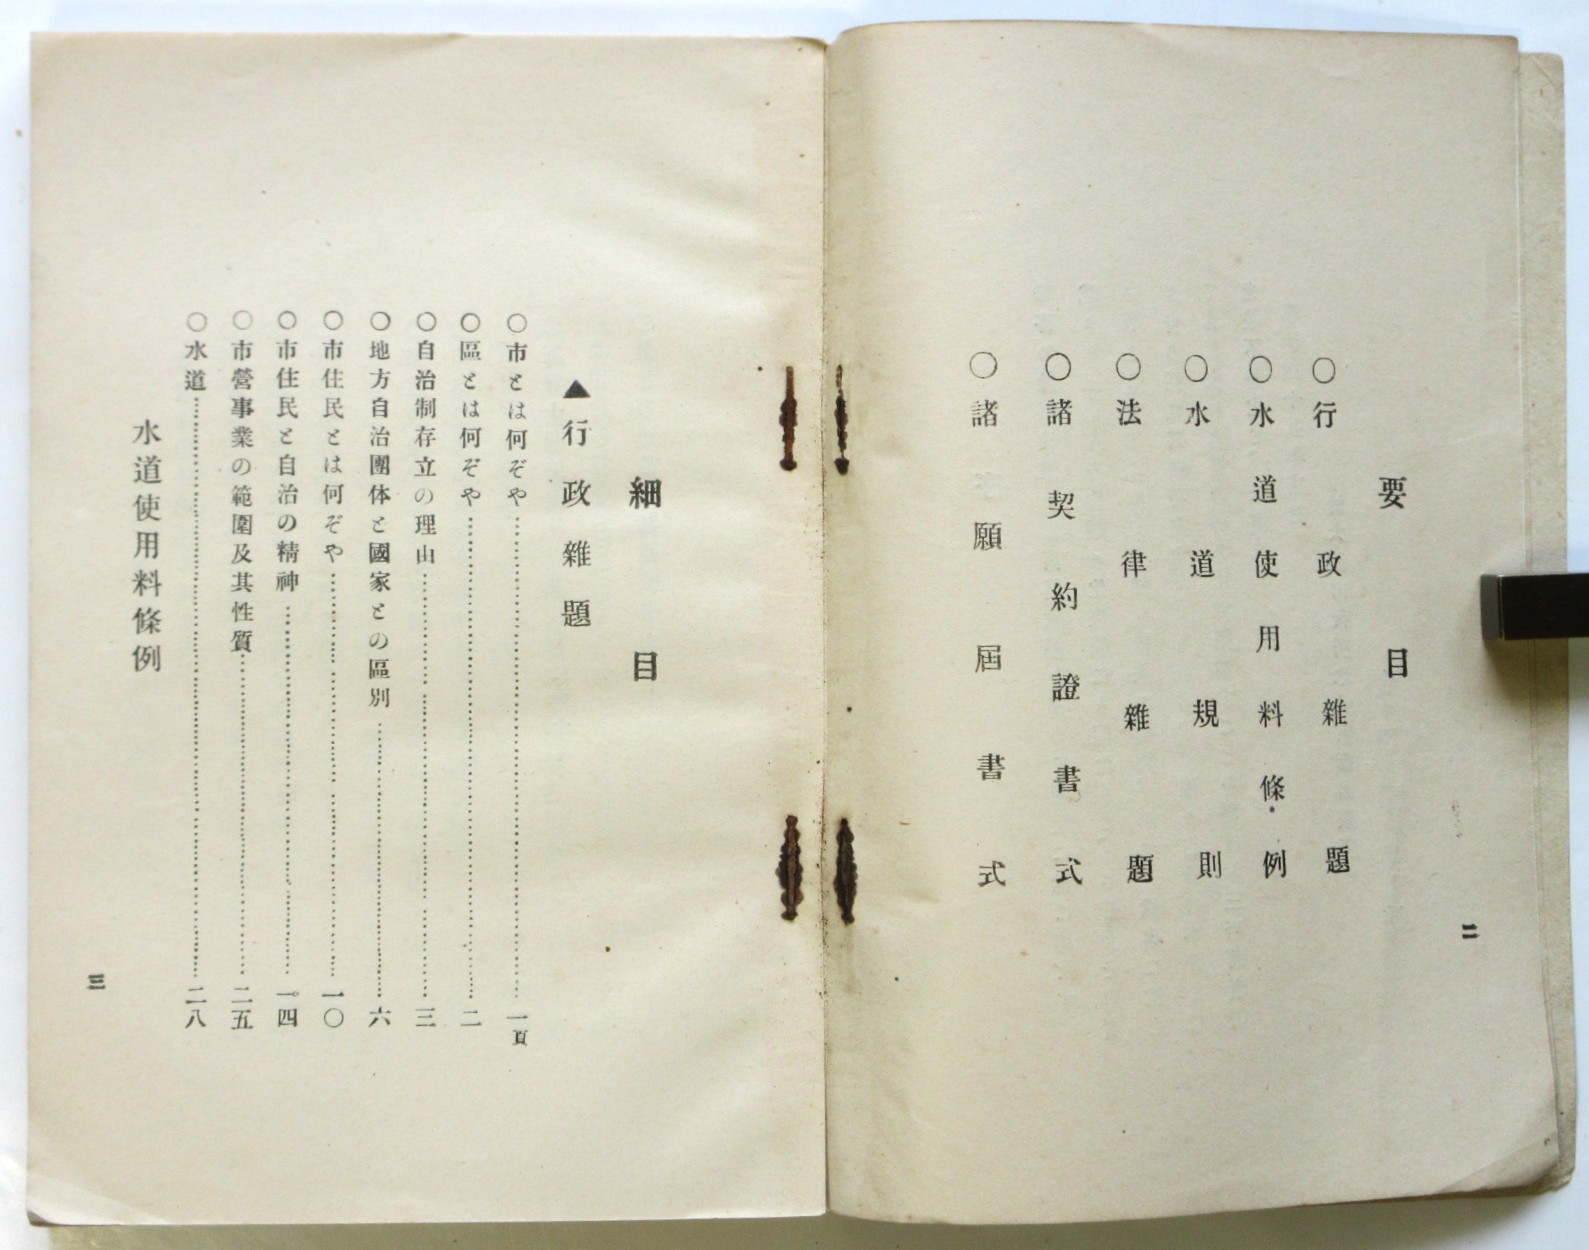 要目
〇行政雜題
〇水道使用料條例
〇水道規則
〇法律雜題
〇諸契約證書式
〇諸願屆書式
二
細目
▲行政雜題
〇市とは何ぞや……一頁
〇區とは何ぞや……二
〇自治制存立の理由……三
〇地方自治團体と國家との區別……六
〇市住民とは何ぞや……一〇
〇市住民と自治の精神……一四
〇市營事業の範圍及其性質……二五
〇水道……二八
水道使用料條例
三